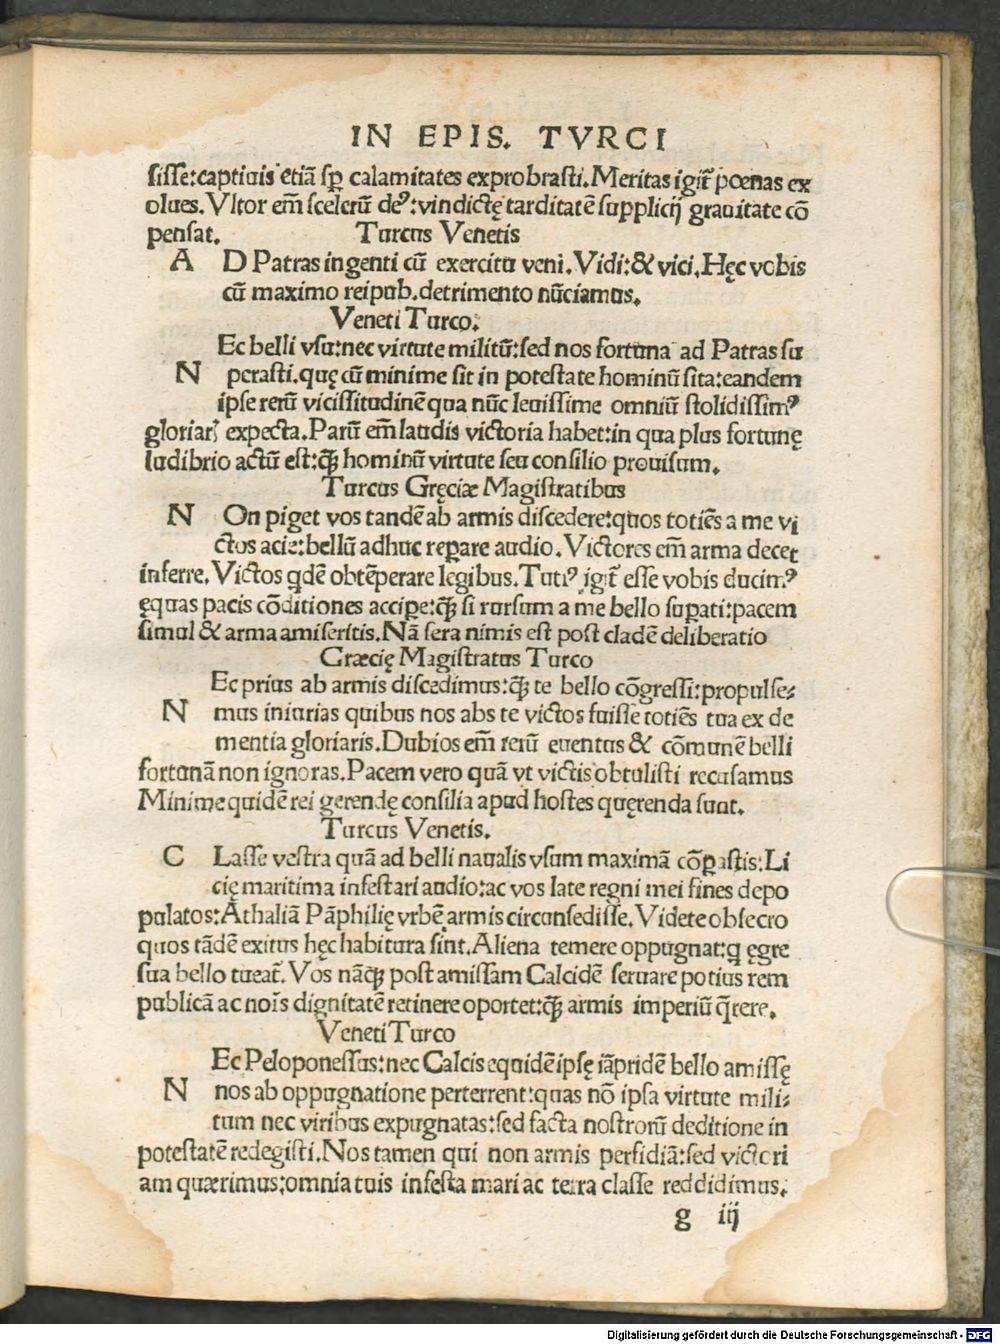 IN EPIS. TVRCI
ſiſſe:captiuis etiã ſꝑ calamitates exprobraſti.Meritas igit᷑ pœnas ex
olues.Vltor em̃ ſcelerũ deꝰ:vindictę tarditatẽ ſupplicij grauitate cõ
penſat. Turcus Venetis
A D Patras ingenti cũ exercitu veni.Vidi:& vici.Hęc vobis
cũ maximo reipub.detrimento nũciamus.
Veneti Turco.
Ec belli vſu:nec virtute militũ:ſed nos fortuna ad Patras ſu
N peraſti.quę cũ minime ſit in poteſtate hominũ ſita:eandem
ipſe rerũ viciſſitudinẽ qua nũc leuiſſime omniũ ſtolidiſſimꝰ
gloriar᷑ expecta.Parũ em̃ laudis victoria habet:in qua plus fortunę
ludibrio actũ eſt:ꝙ̃ hominũ virtute ſeu conſilio prouiſum.
Turcus Gręciæ Magiſtratibus
N On piget vos tandẽ ab armis diſcedere:quos totiẽs a me vi
ctos acie:bellũ adhuc reꝑare audio.Victores em̃ arma decet
inferre.Victos qdẽ obtẽperare legibus.Tutiꝰ igit᷑ eſſe vobis ducimꝰ
ęquas pacis cõditiones acciꝑe:ꝙ̃ ſi rurſum a me bello ſuꝑati:pacem
ſimul & arma amiſeritis.Nã ſera nimis eſt poſt cladẽ deliberatio
Græcię Magiſtratus Turco
Ec prius ab armis diſcedimus:ꝙ̃ te bello cõgreſſi:propulſe⸗
N mus iniurias quibus nos abs te victos fuiſſe totiẽs tua ex de
mentia gloriaris.Dubios em̃ rerũ euentus & cõmunẽ belli
fortunã non ignoras.Pacem vero quã vt victis obtuliſti recuſamus
Minime quidẽ rei gerendę conſilia apud hoſtes quęrenda ſunt.
Turcus Venetis.
C Laſſe veſtra quã ad belli naualis vſum maximã cõꝑaſtis:Li
cię maritima infeſtari audio:ac vos late regni mei fines depo
pulatos:Athaliã Pãphilię vrbẽ armis circunſediſſe.Videte obſecro
quos tãdẽ exitus hęc habitura ſint.Aliena temere oppugnat:q ęgre
ſua bello tueat᷑.Vos nãꝙ̃ poſt amiſſam Calcidẽ ſeruare potius rem
publicã ac noı̃s dignitatẽ retinere oportet:ꝙ̃ armis imperiũ q̃rere.
Veneti Turco
Ec Peloponeſſus:nec Calcis equidẽ ipſę iãpridẽ bello amiſſę
N nos ab oppugnatione perterrent:quas nõ ipſa virtute mili⸗
tum nec viribus expugnatas:ſed facta noſtrorũ deditione in
poteſtatẽ redegiſti.Nos tamen qui non armis perfidiã:ſed victori
am quærimus:omnia tuis infeſta mari ac terra claſſe reddidimus.
g iij
Digitalisierung gefördert durch die Deutsche Forschungsgemeinschaft - DFG